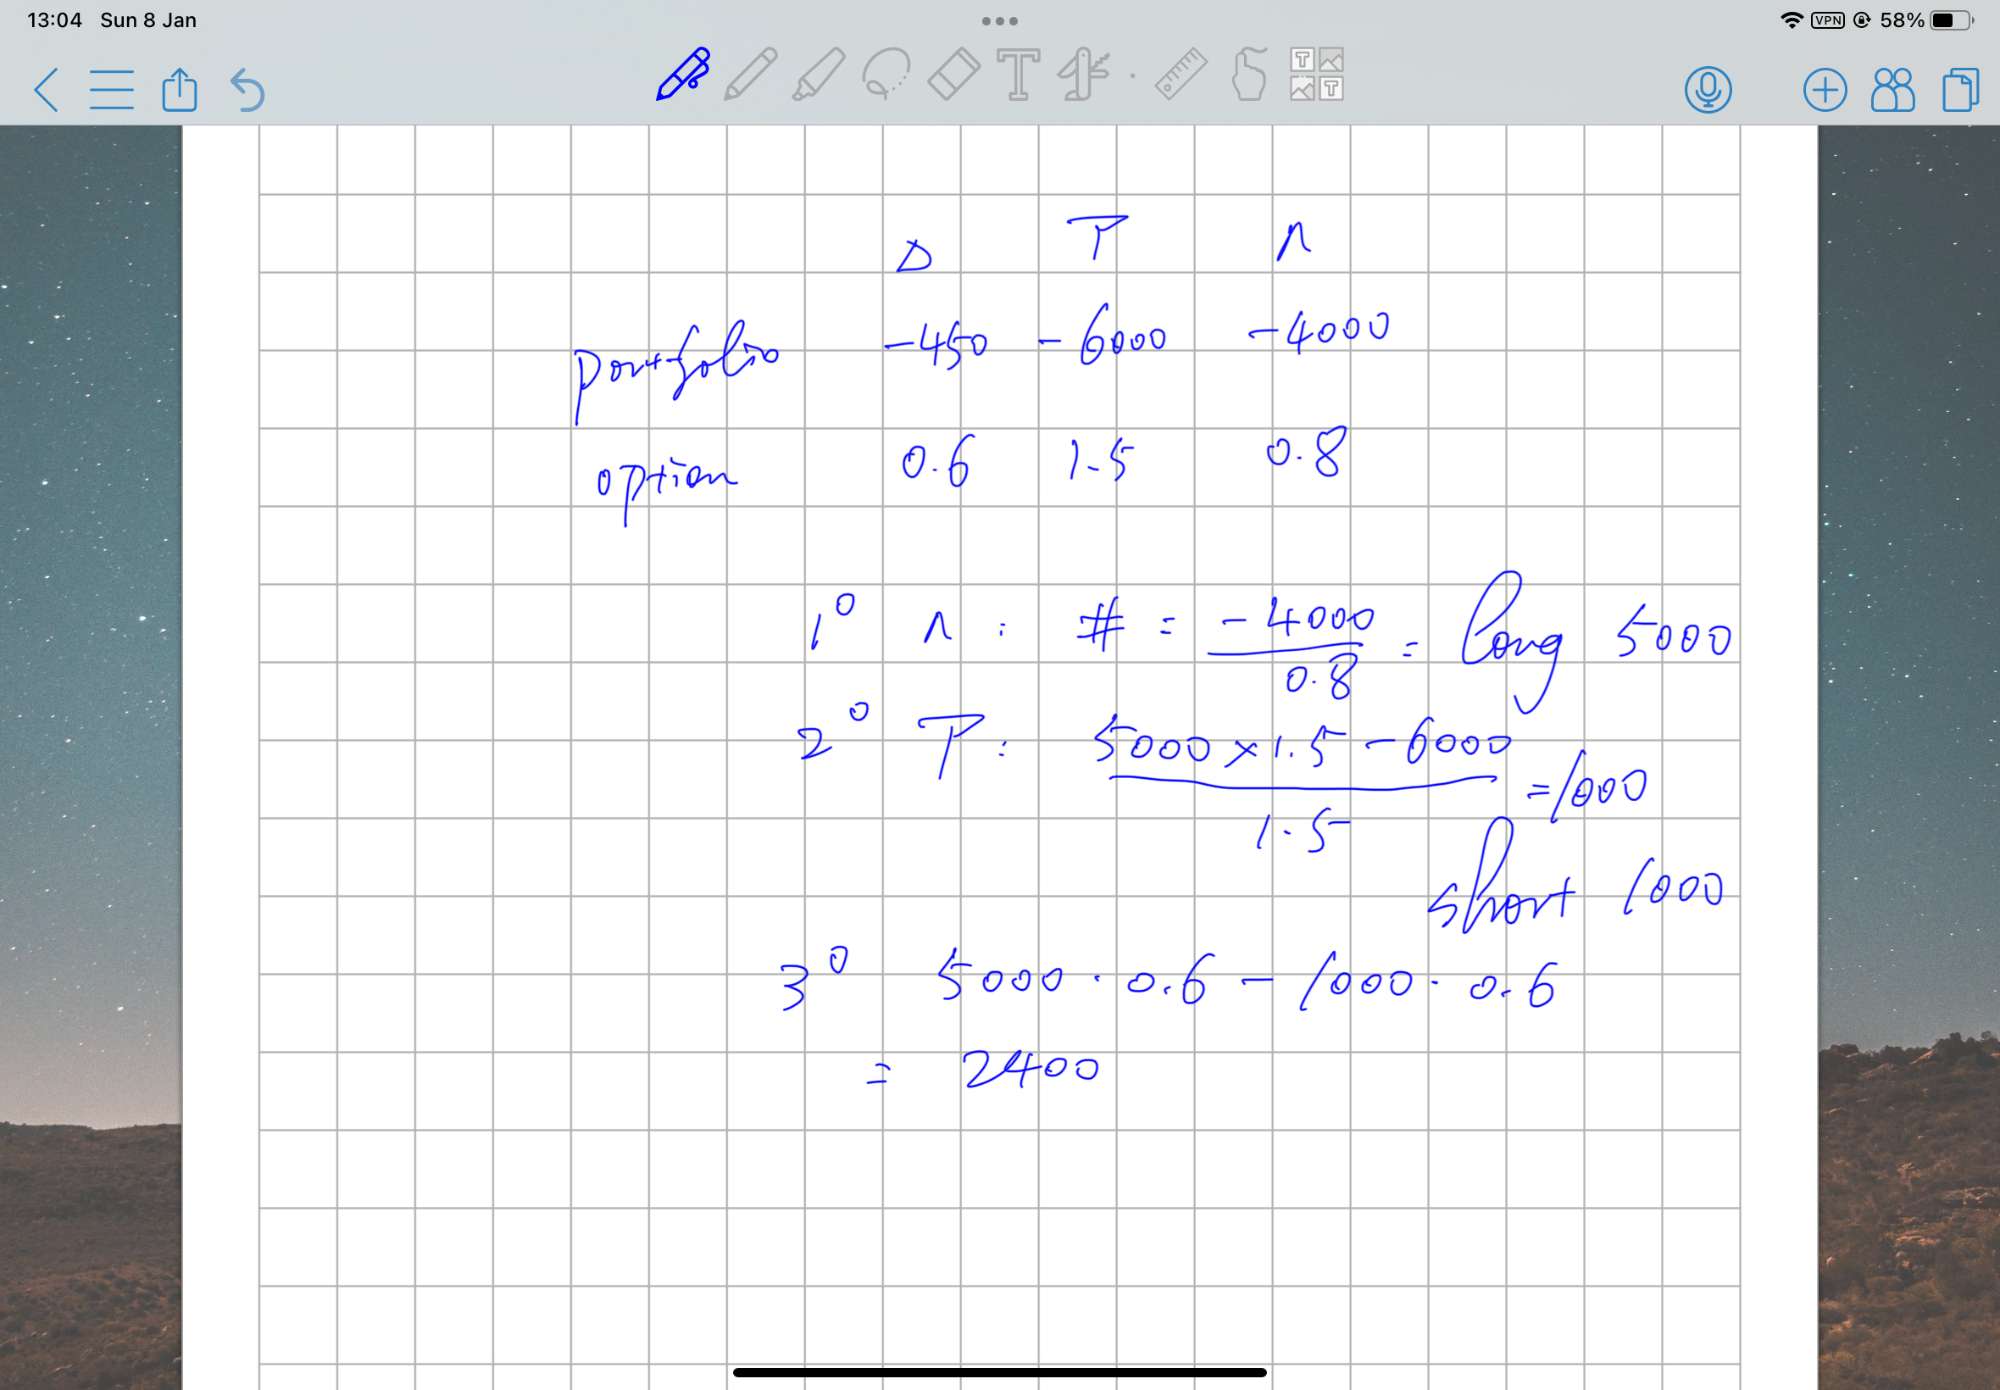 13:04 Sun 8 Jan VPN 58%
Δ Γ Λ
portfolio -450 -6000 -4000
option 0.6 1.5 0.8
1° Λ: # = -4000 / 0.8 = long 5000
2° Γ: 5000 × 1.5 - 6000 / 1.5 = 1000
short 1000
3° 5000 · 0.6 - 1000 · 0.6
= 2400